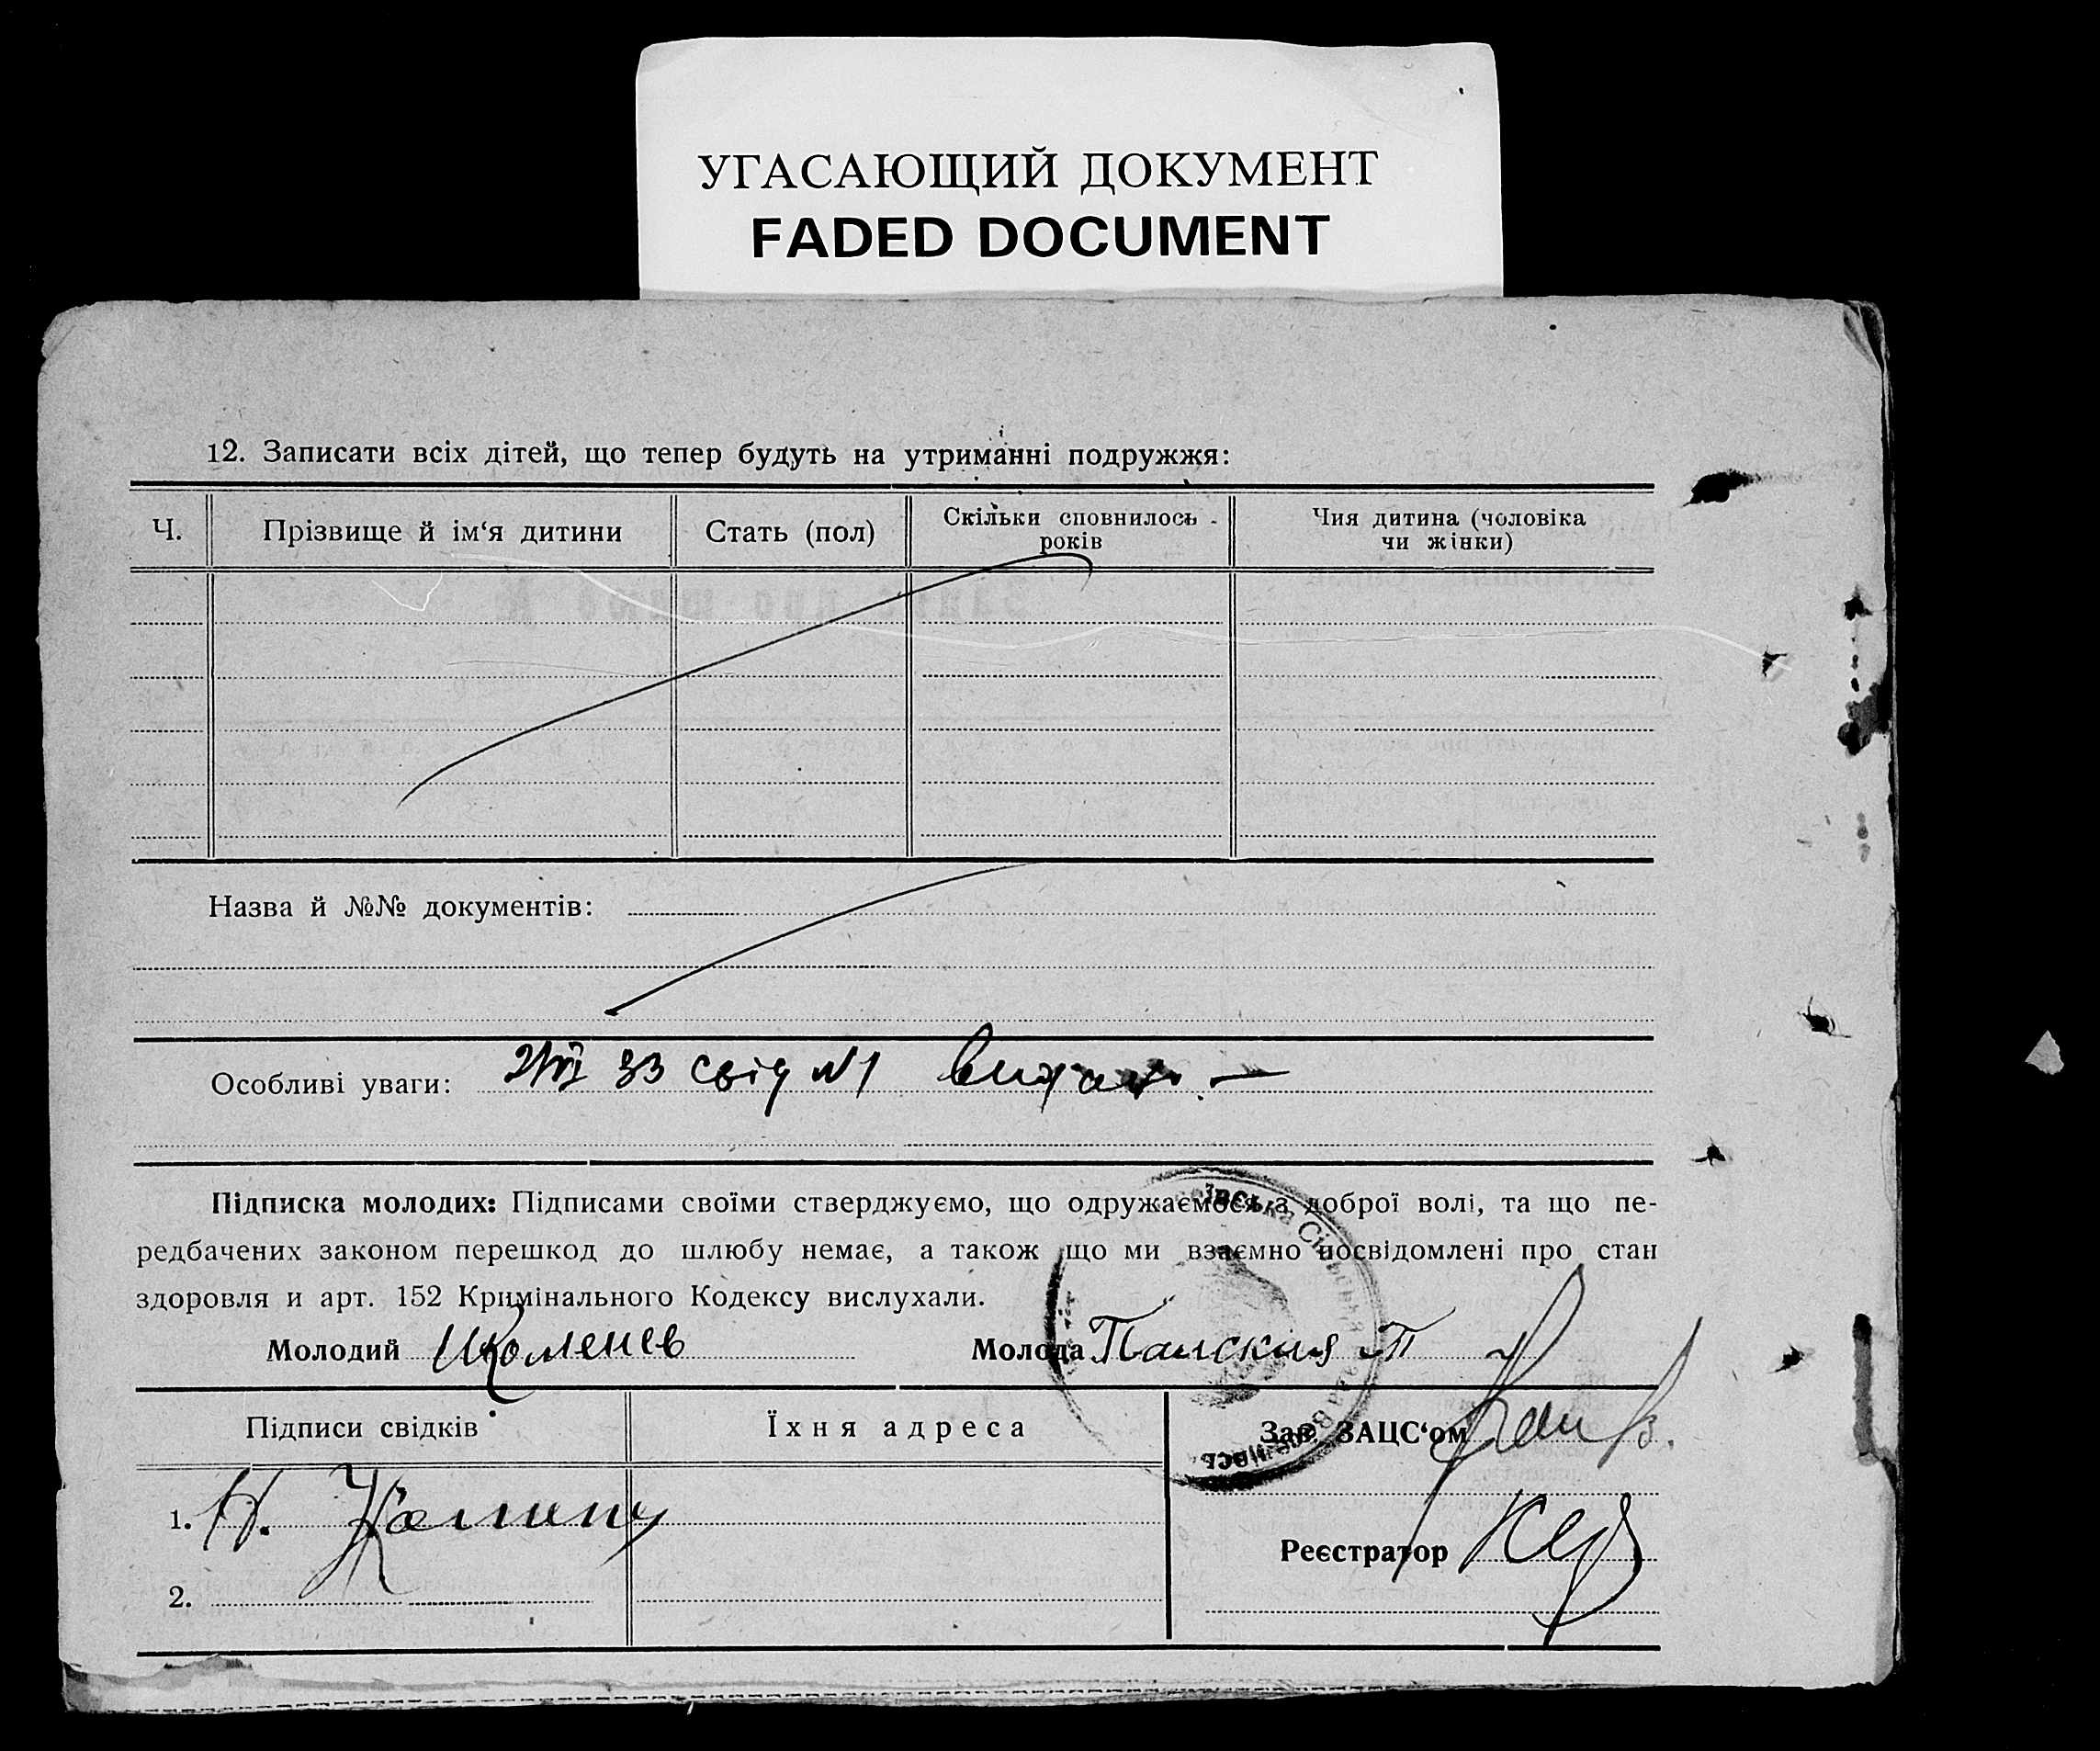 УГАСАЮЩИЙ ДОКУМЕНТ
FADED DOCUMENT
12. Записати всіх дітей, що тепер будуть на утриманні подружжя:
Ч.
Прізвище й ім‘я дитини
Стать (пол)
Скільки сповнилось
років
Чия дитина (чоловіка
чи жінки)
Назва й №№ документів:
Особливі уваги: 33 свід №1 видано. —
Підписка молодих: Підписами своїми стверджуємо, що одружаємося з доброї волі, та що пе-
редбачених законом перешкод до шлюбу немає, а також що ми взаємно посвідомлені про стан
здоровля и арт. 152 Кримінального Кодексу вислухали.
Молодий
Молода
Підписи свідків
Їхня адреса
Зав. ЗАЦС‘ом
1. Н.
Реєстратор
2.